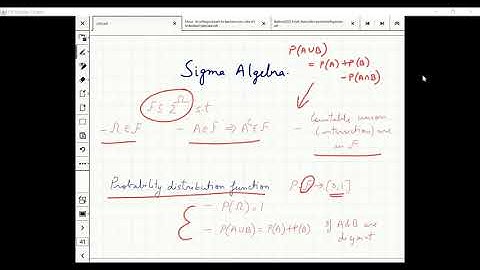 P(A∪B)
= P(A) + P(B)
- P(A∩B)
Sigma Algebra.
F ⊆ Σ^Ω s.t
- Ω ∈ F
- A ∈ F ⇒ A^c ∈ F
- Countable union
(intersection) are
in F
Probability distribution function
P: F → [0,1]
- P(Ω) = 1
- P(A∪B) = P(A) + P(B) if A & B are
disjoint
41